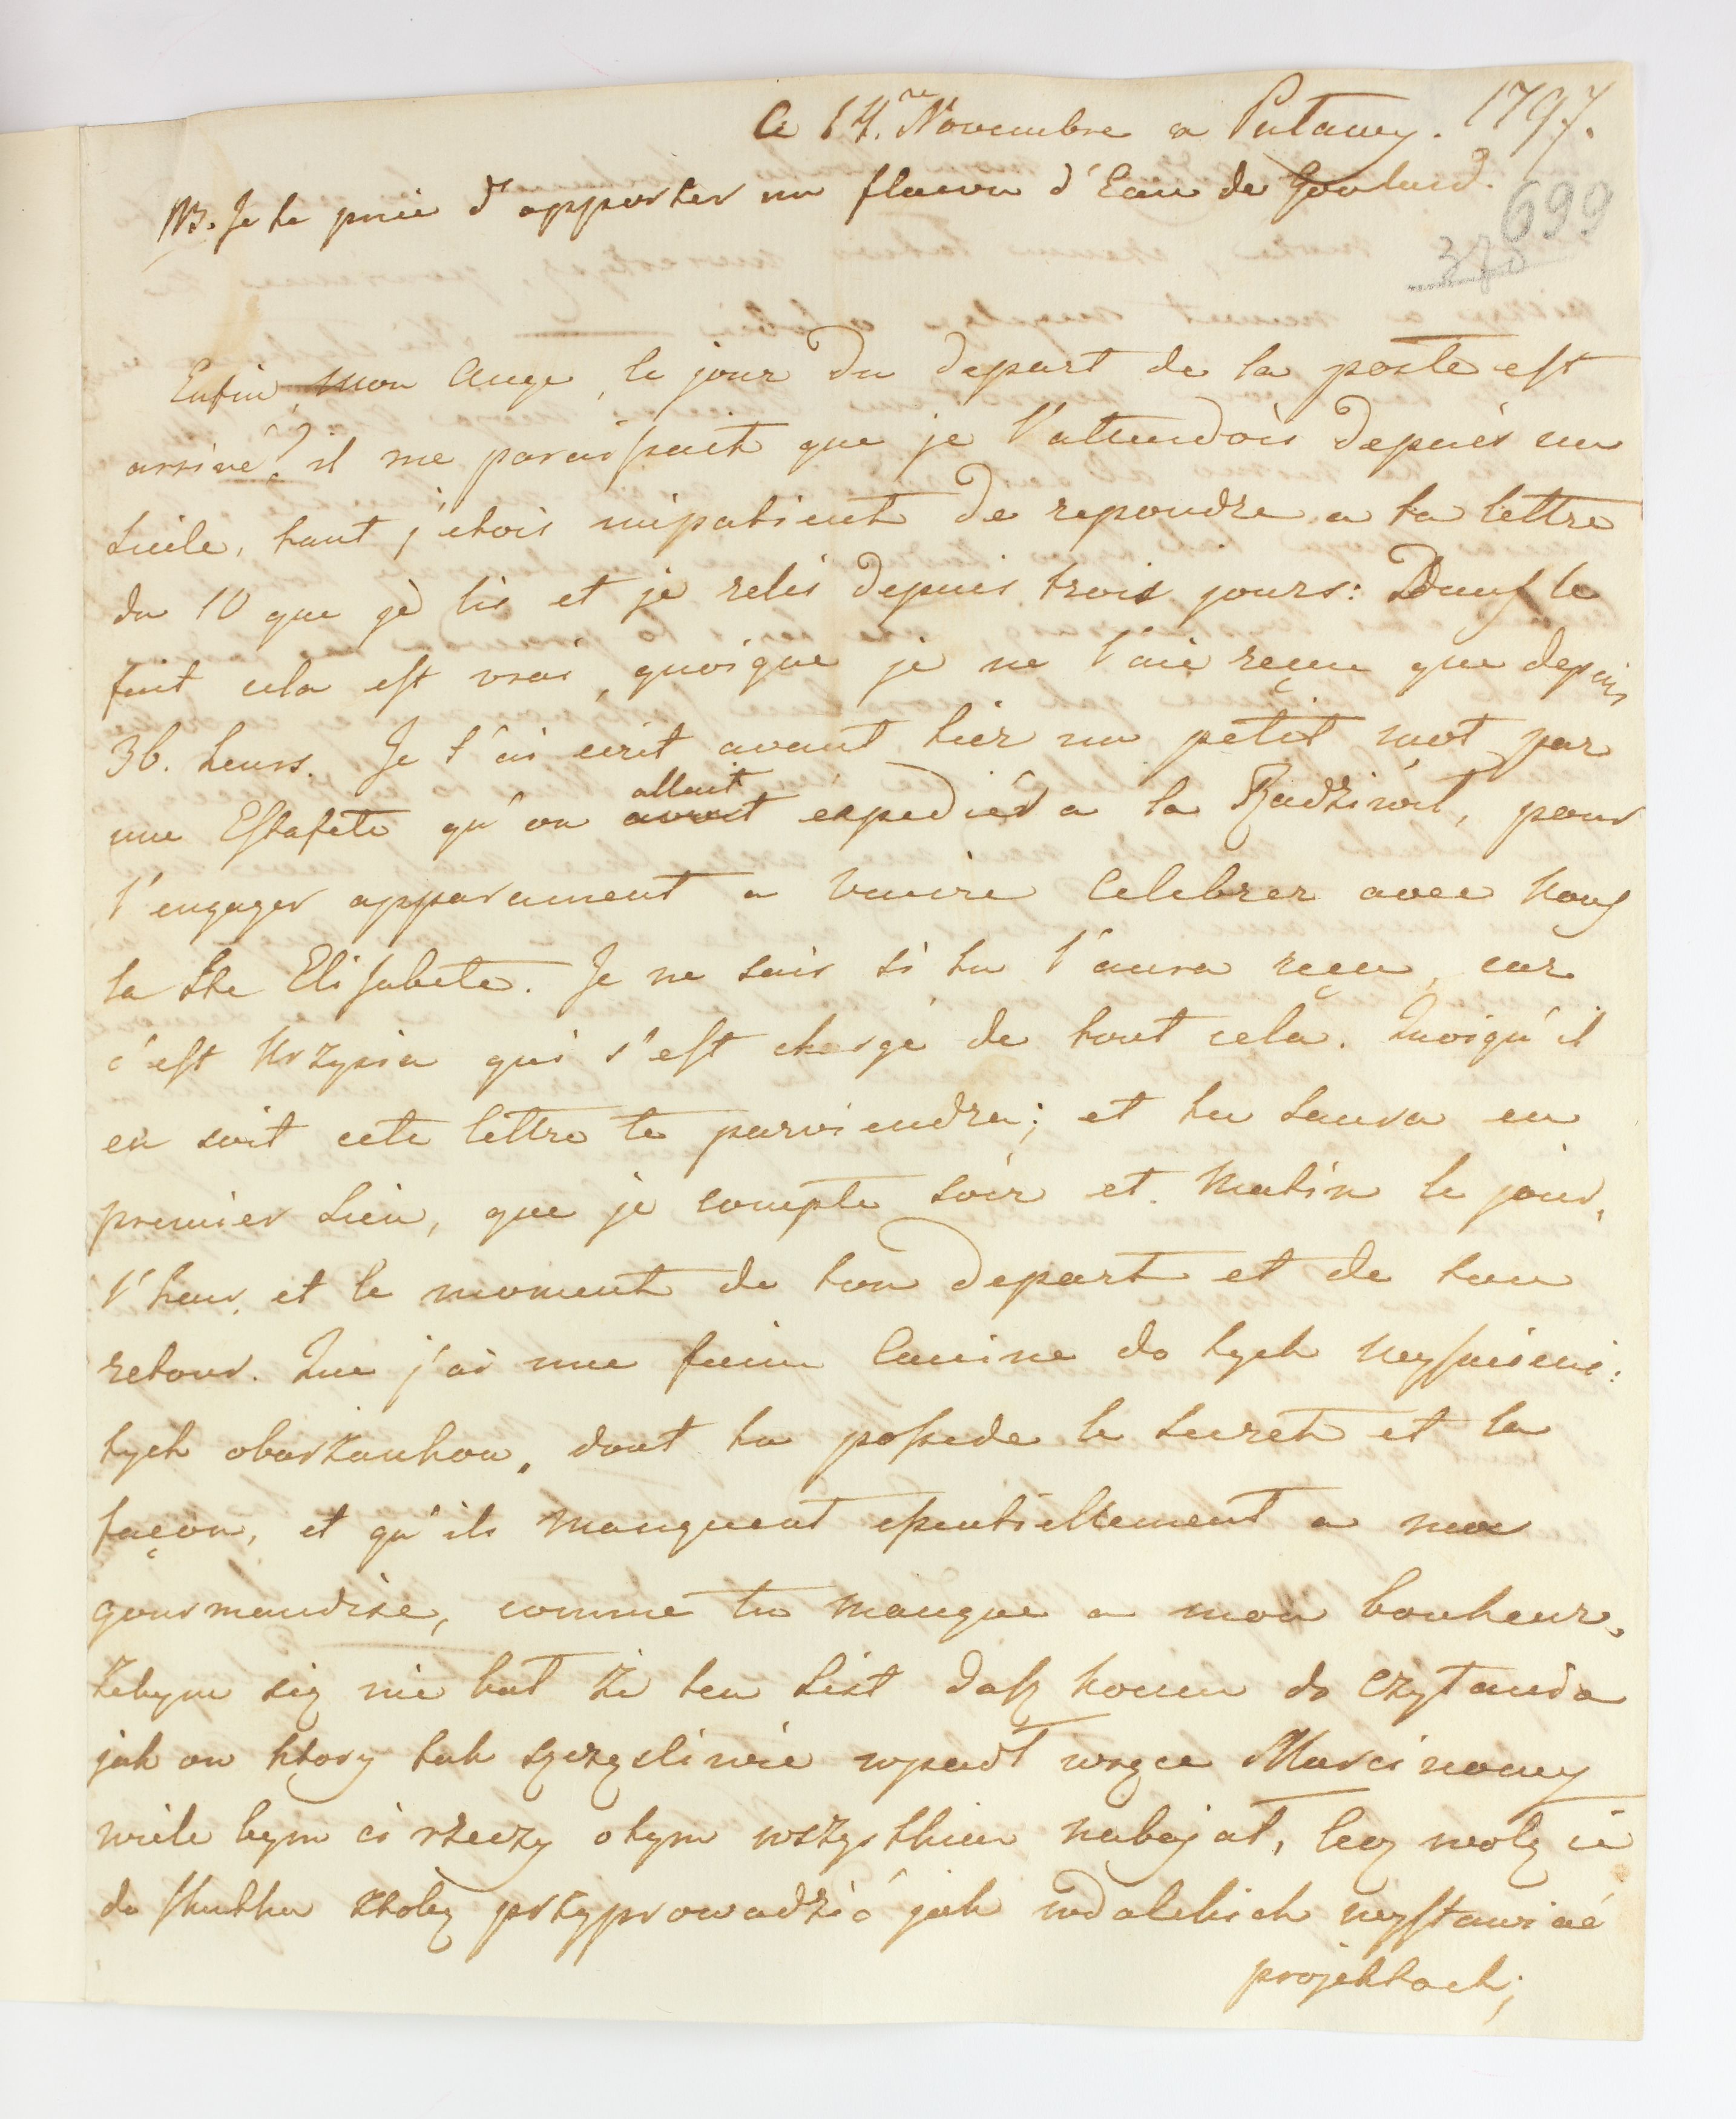 Ce 14.re Novembre a Pulawy. 1797.
NB. Je te prie d'apporter un flacon d'Eau de Goulard.
699
378
Enfin, mon Ange, le jour du depart de la poste est
arrivé? il me paraissait que je l'attendois depuis un
siecle, tant j'etois impatient de repondre a ta lettre
du 10 que je lis et je relis depuis trois jours: Dans le
fait cela est vrai, quoique je ne l'aie reçue que depuis
36. heurs. Je t'ai ecrit avant hier un petit mot par
une Estafete qu'on allait expedier a la Radziwil, pour
l'engager apparament a venire celebrer avec nous
la Ste Elisabete. Je ne sais si tu l'aura reçu, car
c'est Krzysia qui s'est chargé de tout cela. Quoiqu'il
en soit cete lettre te parviendra; et tu saura en
premier lieu, que je compte soir et matin le jour,
l'heur, et le moment de ton depart et de ton
retour. Que j'ai une faim canine do tych
tych obarzankow, dont tu possede le secret et la
façon, et qu'ils manquent essentiellement a ma
gourmandise, comme tu manque a mon bonheur.
Żebym się nie bał że ten list dasz komu do czytania
jak on ktory tak szczęsliwie wpadł wręce Marcinowy
wiele bym ci rzeczy otym wszystkiem nabajał, lecz wolę ie
do skutku przyprowadzić jak wdalekich wystawiać
projektach;